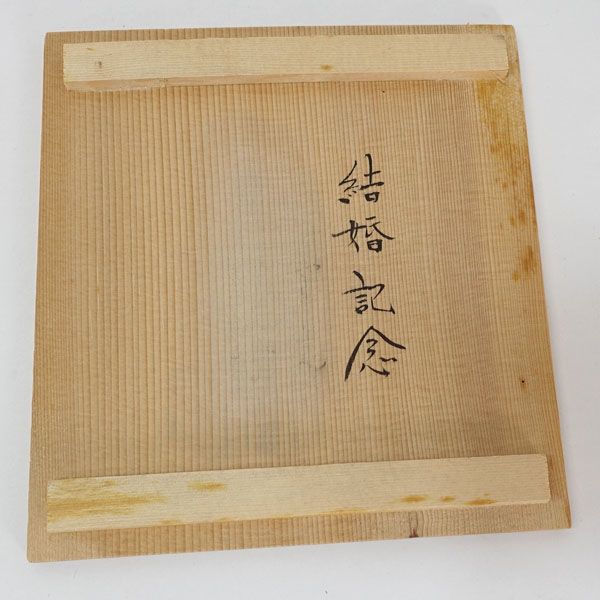 結婚記念